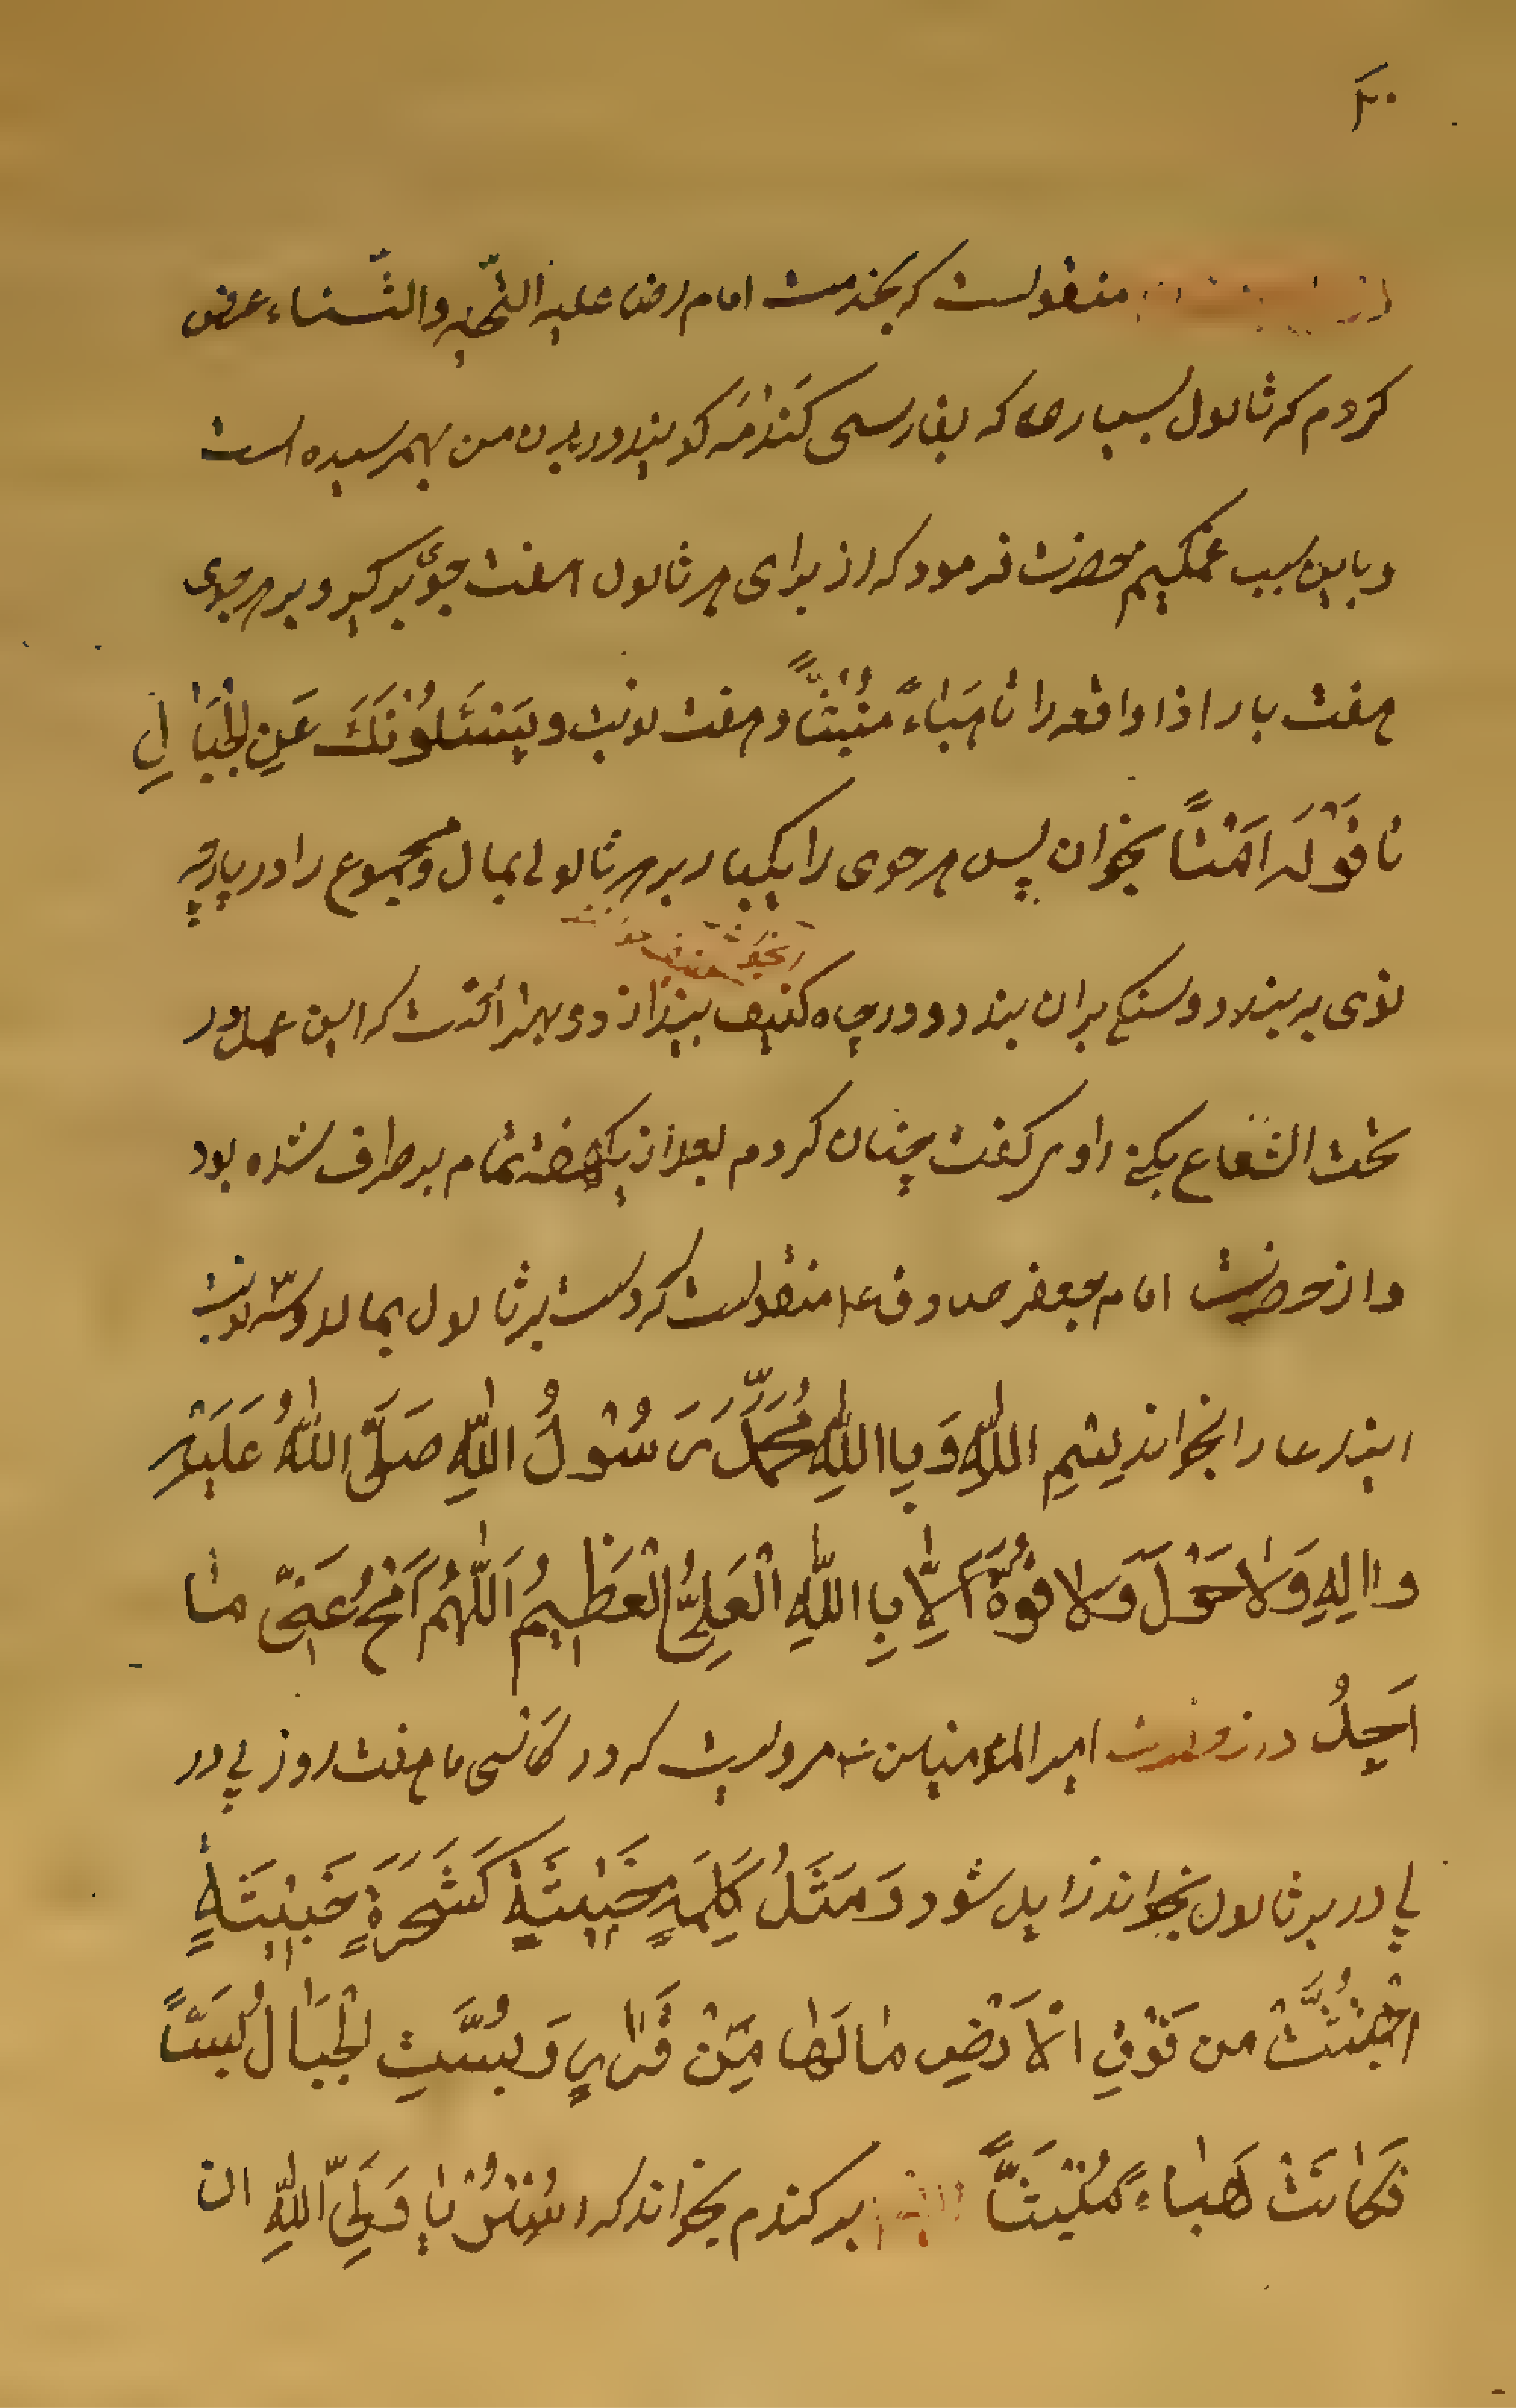 ۲۰
از منقولست که بخدمت امام رضا علیه التّحیه والثّناء عرض
کردم که ثالول بسیاری که بفارسی کَندْمَه کویند در بدن من بهمرسیده است
و باین سبب غمکیم حضرت فرمود که از برای هر ثالول هفت جَو بر کیر و بر هر جوی
هفت بار اذا واقعه را تا هَبَاءً مُنْبَثّاً و هفت نوبت و یَسْئَلُوْنَكَ عَنِ الْجِبَالِ
تا قَوْلَه اَمْتاً بخوان پس هر جوی را یکبار بر هر ثالولی بمال و مجموع را در پارچه
نوی بر بند و سنکی بران بند و در چاه کنیف بینداز و بهتر آنست که این عمل در
تحت الشّعاع بکنی راوی کفت چنان کردم بعد از یکهفته تمام بر طرف شده بود
و از حضرت امام جعفر صادق ع منقولست که دست بر ثالول بمالد و سّه نوبت
ایندعا را بخواند بِسْمِ اللّٰهِ وَ بِا اللّٰهِ مُحَمَّدٌ رَسُوْلُ اللّٰهِ صَلَّی اللّٰهُ عَلَیْهِ
وَ اٰلِهِ وَلاٰحَوْلَ وَلا قُوَّةَ اِلاّٰ بِا اللّٰهِ الْعَلِیُّ الْعَظِیْمُ اَللّٰهُمَّ اَمْحُ عَنّی مٰا
اَجِدُ و از حضرت امیر المؤمنین مرویست که در کاسی ماه هفت روز پی در
پی در بر ثالول بخواند زایل شود وَ مَثَلُ کَلِمَةٍ خَبْیثَةٍ کَشَجَرَةٍ خَبْیثَةٍ
اجْتُثَّتْ من فَوْقِ الْاَرْضِ مٰا لَهٰا مِنْ قَرٰارٍ وَ بُسَّتِ الْجِبٰالُ بَسّاً
فَکٰانَتْ هَبٰاءً مُنْبَثّاً بر کندم بخواند که یا وَلِیَّ اللّٰهِ ان